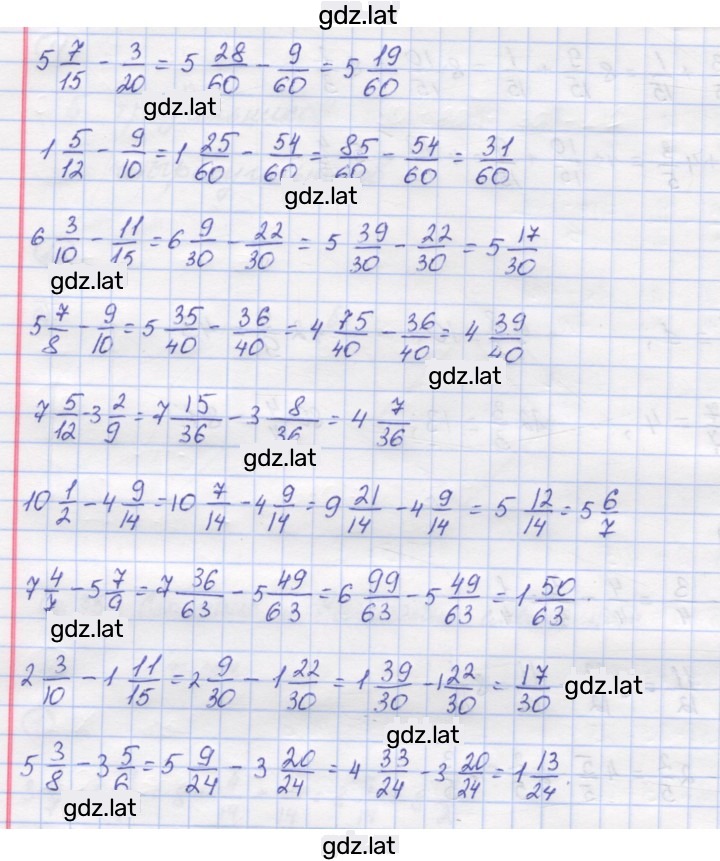 gdz.lat
5 7/15 - 3/20 = 5 28/60 - 9/60 = 5 19/60
gdz.lat
1 5/12 - 9/10 = 1 25/60 - 54/60 = 85/60 - 54/60 = 31/60
gdz.lat
6 3/10 - 11/15 = 6 9/30 - 22/30 = 5 39/30 - 22/30 = 5 17/30
gdz.lat
5 7/8 - 9/10 = 5 35/40 - 36/40 = 4 75/40 - 36/40 = 4 39/40
gdz.lat
7 5/12 - 3 2/9 = 7 15/36 - 3 8/36 = 4 7/36
gdz.lat
10 1/2 - 4 9/14 = 10 7/14 - 4 9/14 = 9 21/14 - 4 9/14 = 5 12/14 = 5 6/7
7 4/7 - 5 7/9 = 7 36/63 - 5 49/63 = 6 99/63 - 5 49/63 = 1 50/63.
gdz.lat
2 3/10 - 1 11/15 = 2 9/30 - 1 22/30 = 1 39/30 - 1 22/30 = 17/30 gdz.lat
gdz.lat
5 3/8 - 3 5/6 = 5 9/24 - 3 20/24 = 4 33/24 - 3 20/24 = 1 13/24.
gdz.lat
gdz.lat